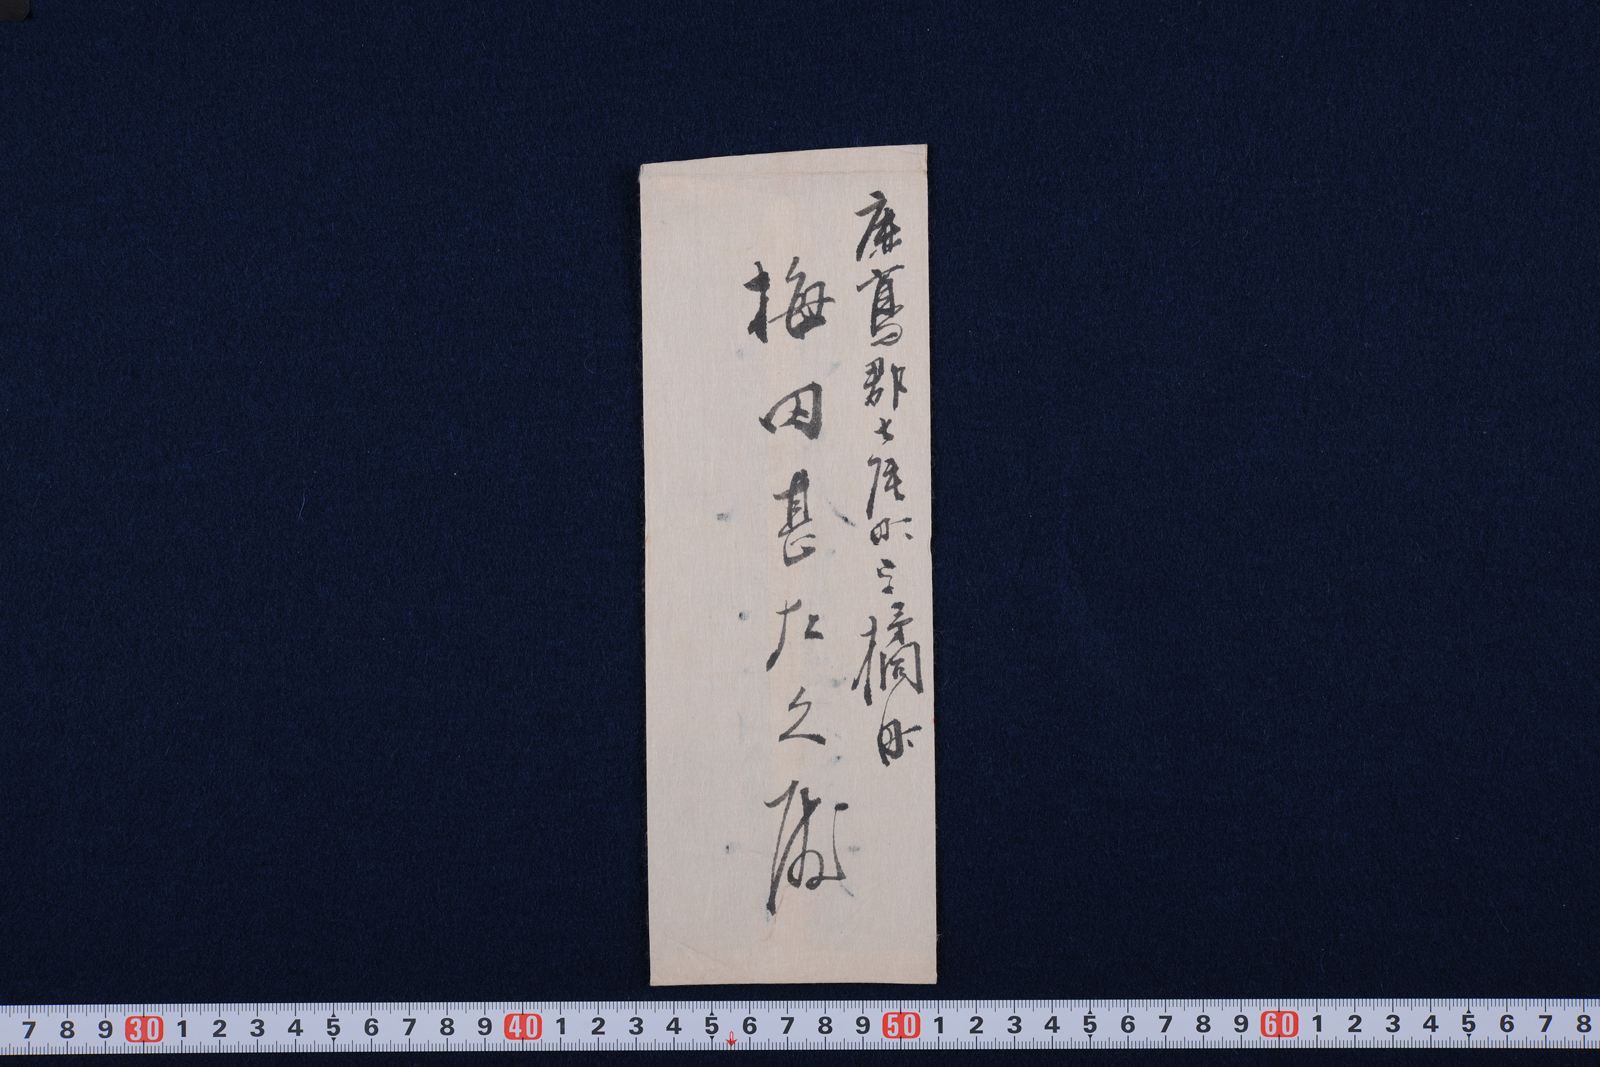 鹿嶌郡七尾町字橘町
梅田甚左久殿
7 8 9 30 1 2 3 4 5 6 7 8 9 40 1 2 3 4 5 6 7 8 9 50 1 2 3 4 5 6 7 8 9 60 1 2 3 4 5 6 7 8